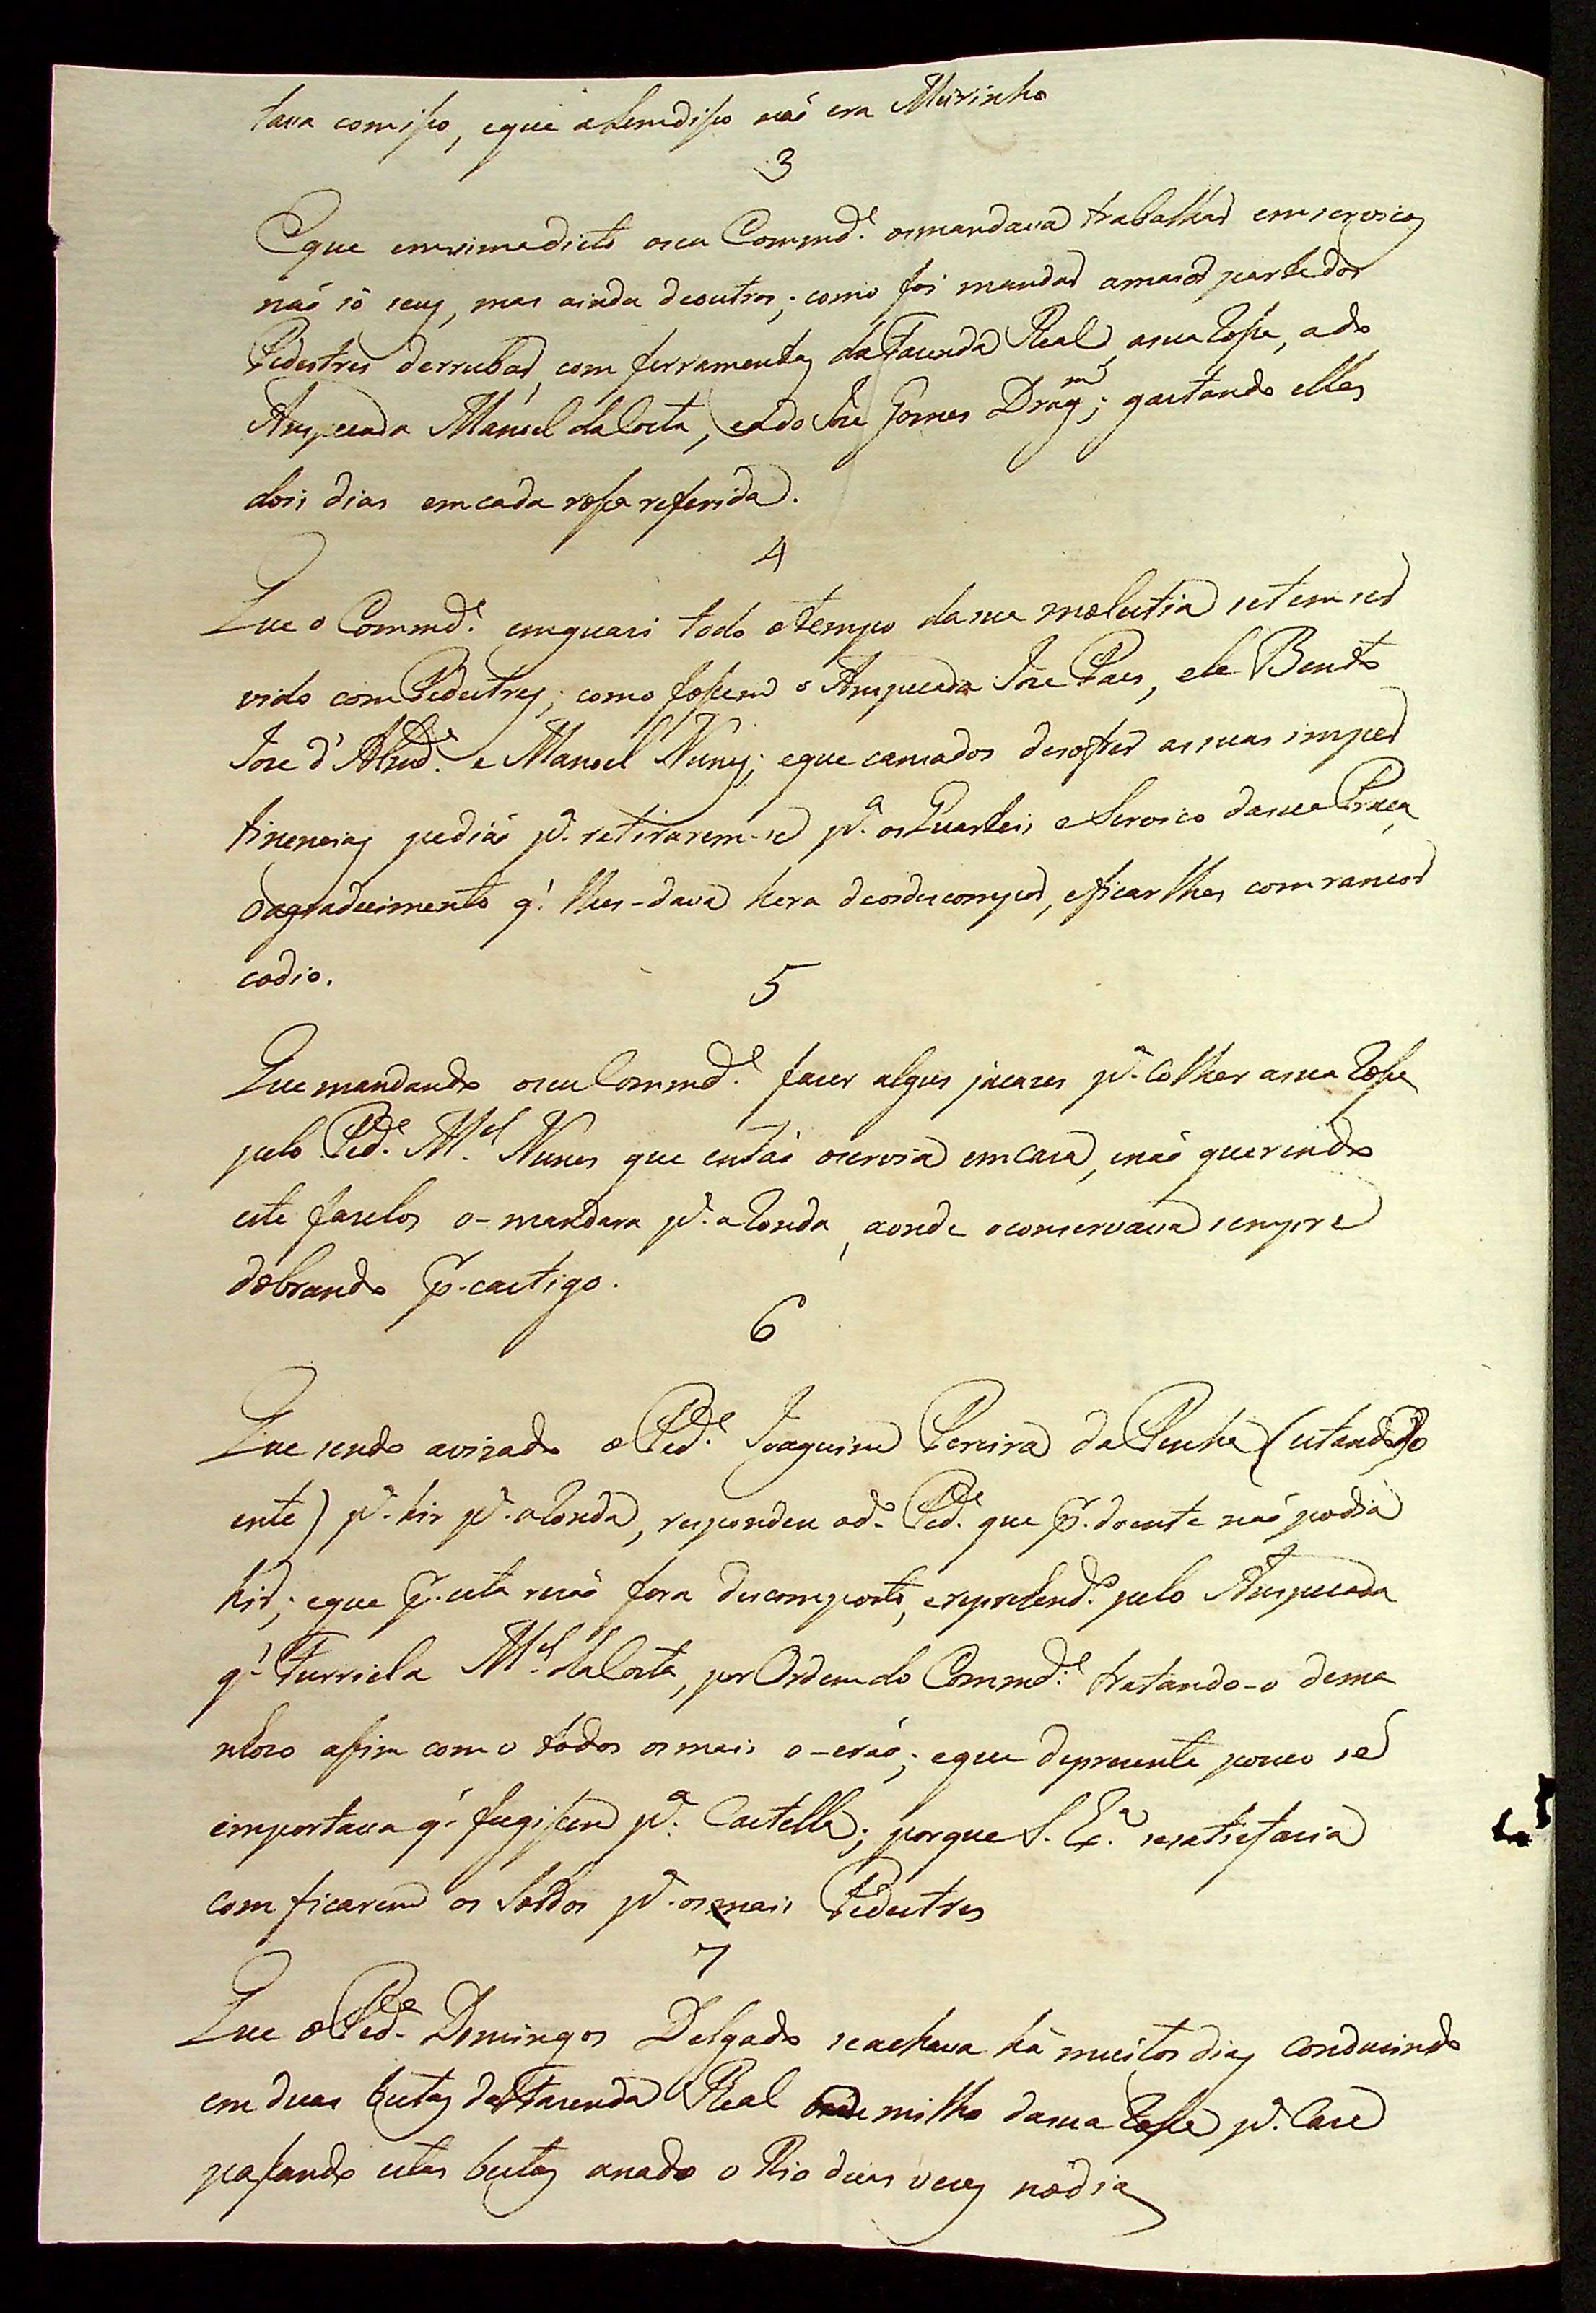 tava comiso, eque alemdiso naõ era Meirinho
3
Eque emvimedicto oseu Commd.e osmandava trabalhar emserviços
naõ só seus, mas ainda deoutros; como foi mandar amaior partedos
Pedestres derrubar, com ferramentas daFazenda Real, asua Rosa, ado
Anspeçada Manoel daCosta, eado Joze Gomes Dragm; gastando elles
dois dias emcada rosa referida.
4
Que o Commd.e emquazi todo otempo dasua molestia setem ser
vido comPedestres; como fosem o Anspeçada Joze Paes, ele Bento
Joze d'Almd.a e Manoel Nunes; eque cansados desofrer assuas imper
tinencias pediaõ p.a retirarem-se p.a osQuarteis eServico dasua Praça,
Oagradecimento q' lhes-dava hera deosdescompor, eficarlhes comrancor
eodio.
5
Que mandando oseu Commd.e fazer algus jacazes p.a Colher asua Rosa
pelo Ped.e M.el Nunes que entaõ oservia emcaza, enaõ querendo
este fazelos o-mandara p.a aRonda, aonde oconservava sempre
dobrando p.r castigo.
6
Que sendo avizado oPed.e Joaquim Pereira daPenha (estando Do
ente) p.a hir p.a aRonda, respondeu od.o Ped.e que p.r doente naõ podia
hir; eque p.r esta rezaõ fora descomposto, ereprehend.o pelo Anspeçada
q' Furriela M.el daCosta, porOrdemdo Commd.e tratando-o dema
nhoso asim como todos osmais o-eraõ; eque deprezente pouco se
emportava q' fugisem p.a Castella; porque S. Ex.a sesatisfazia
com ficarem os Soldos p.a osmais Pedestres
7
Que oPed.e Domingos Delgado seachava há muitos dias Conduzindo
em duas bestas daFazenda Real milho dasua Rosa p.a Caza
pasando estas bestas anado o Rio duas vezes nodia